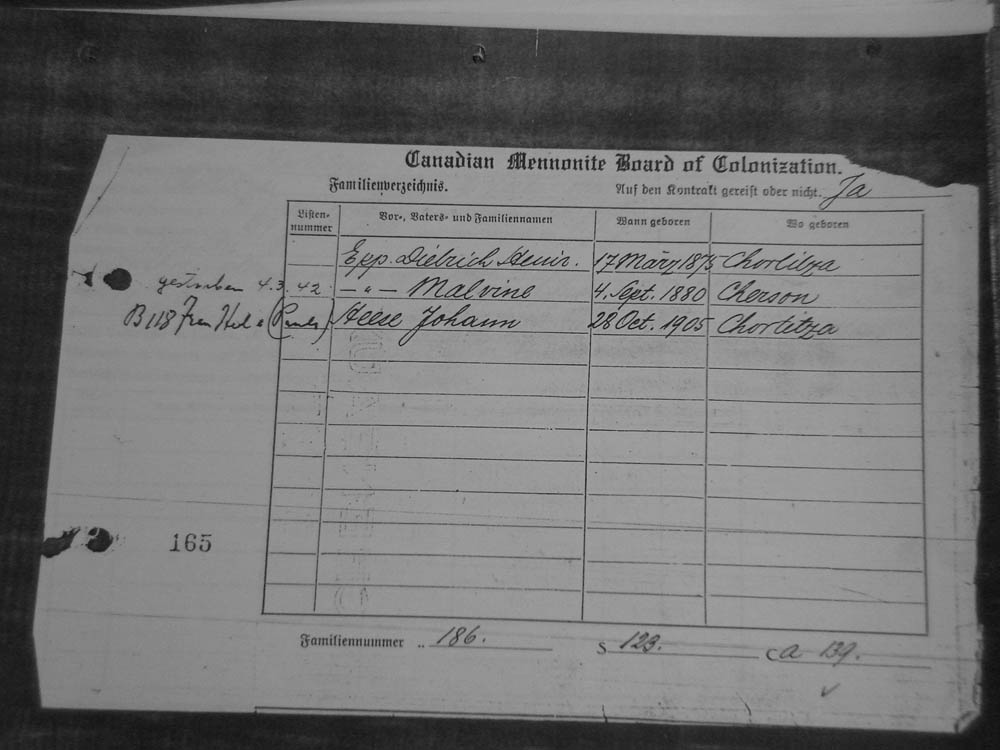 Canadian Mennonite Board of Colonization.
Familienverzeichnis. Auf den Kontrakt gereist oder nicht. Ja
Listen-nummer Vor-, Vaters- und Familiennamen Wann geboren Wo geboren
Epp Dietrich Heinr. 17 März 1875 Chortitza
gestorben 4.3.42 — " — Malvine 4. Sept. 1880 Cherson
B118 Frau (Pauls) Heese Johann 28 Oct. 1905 Chortitza
165
Familiennummer .. 186. S 123. Ca 139.